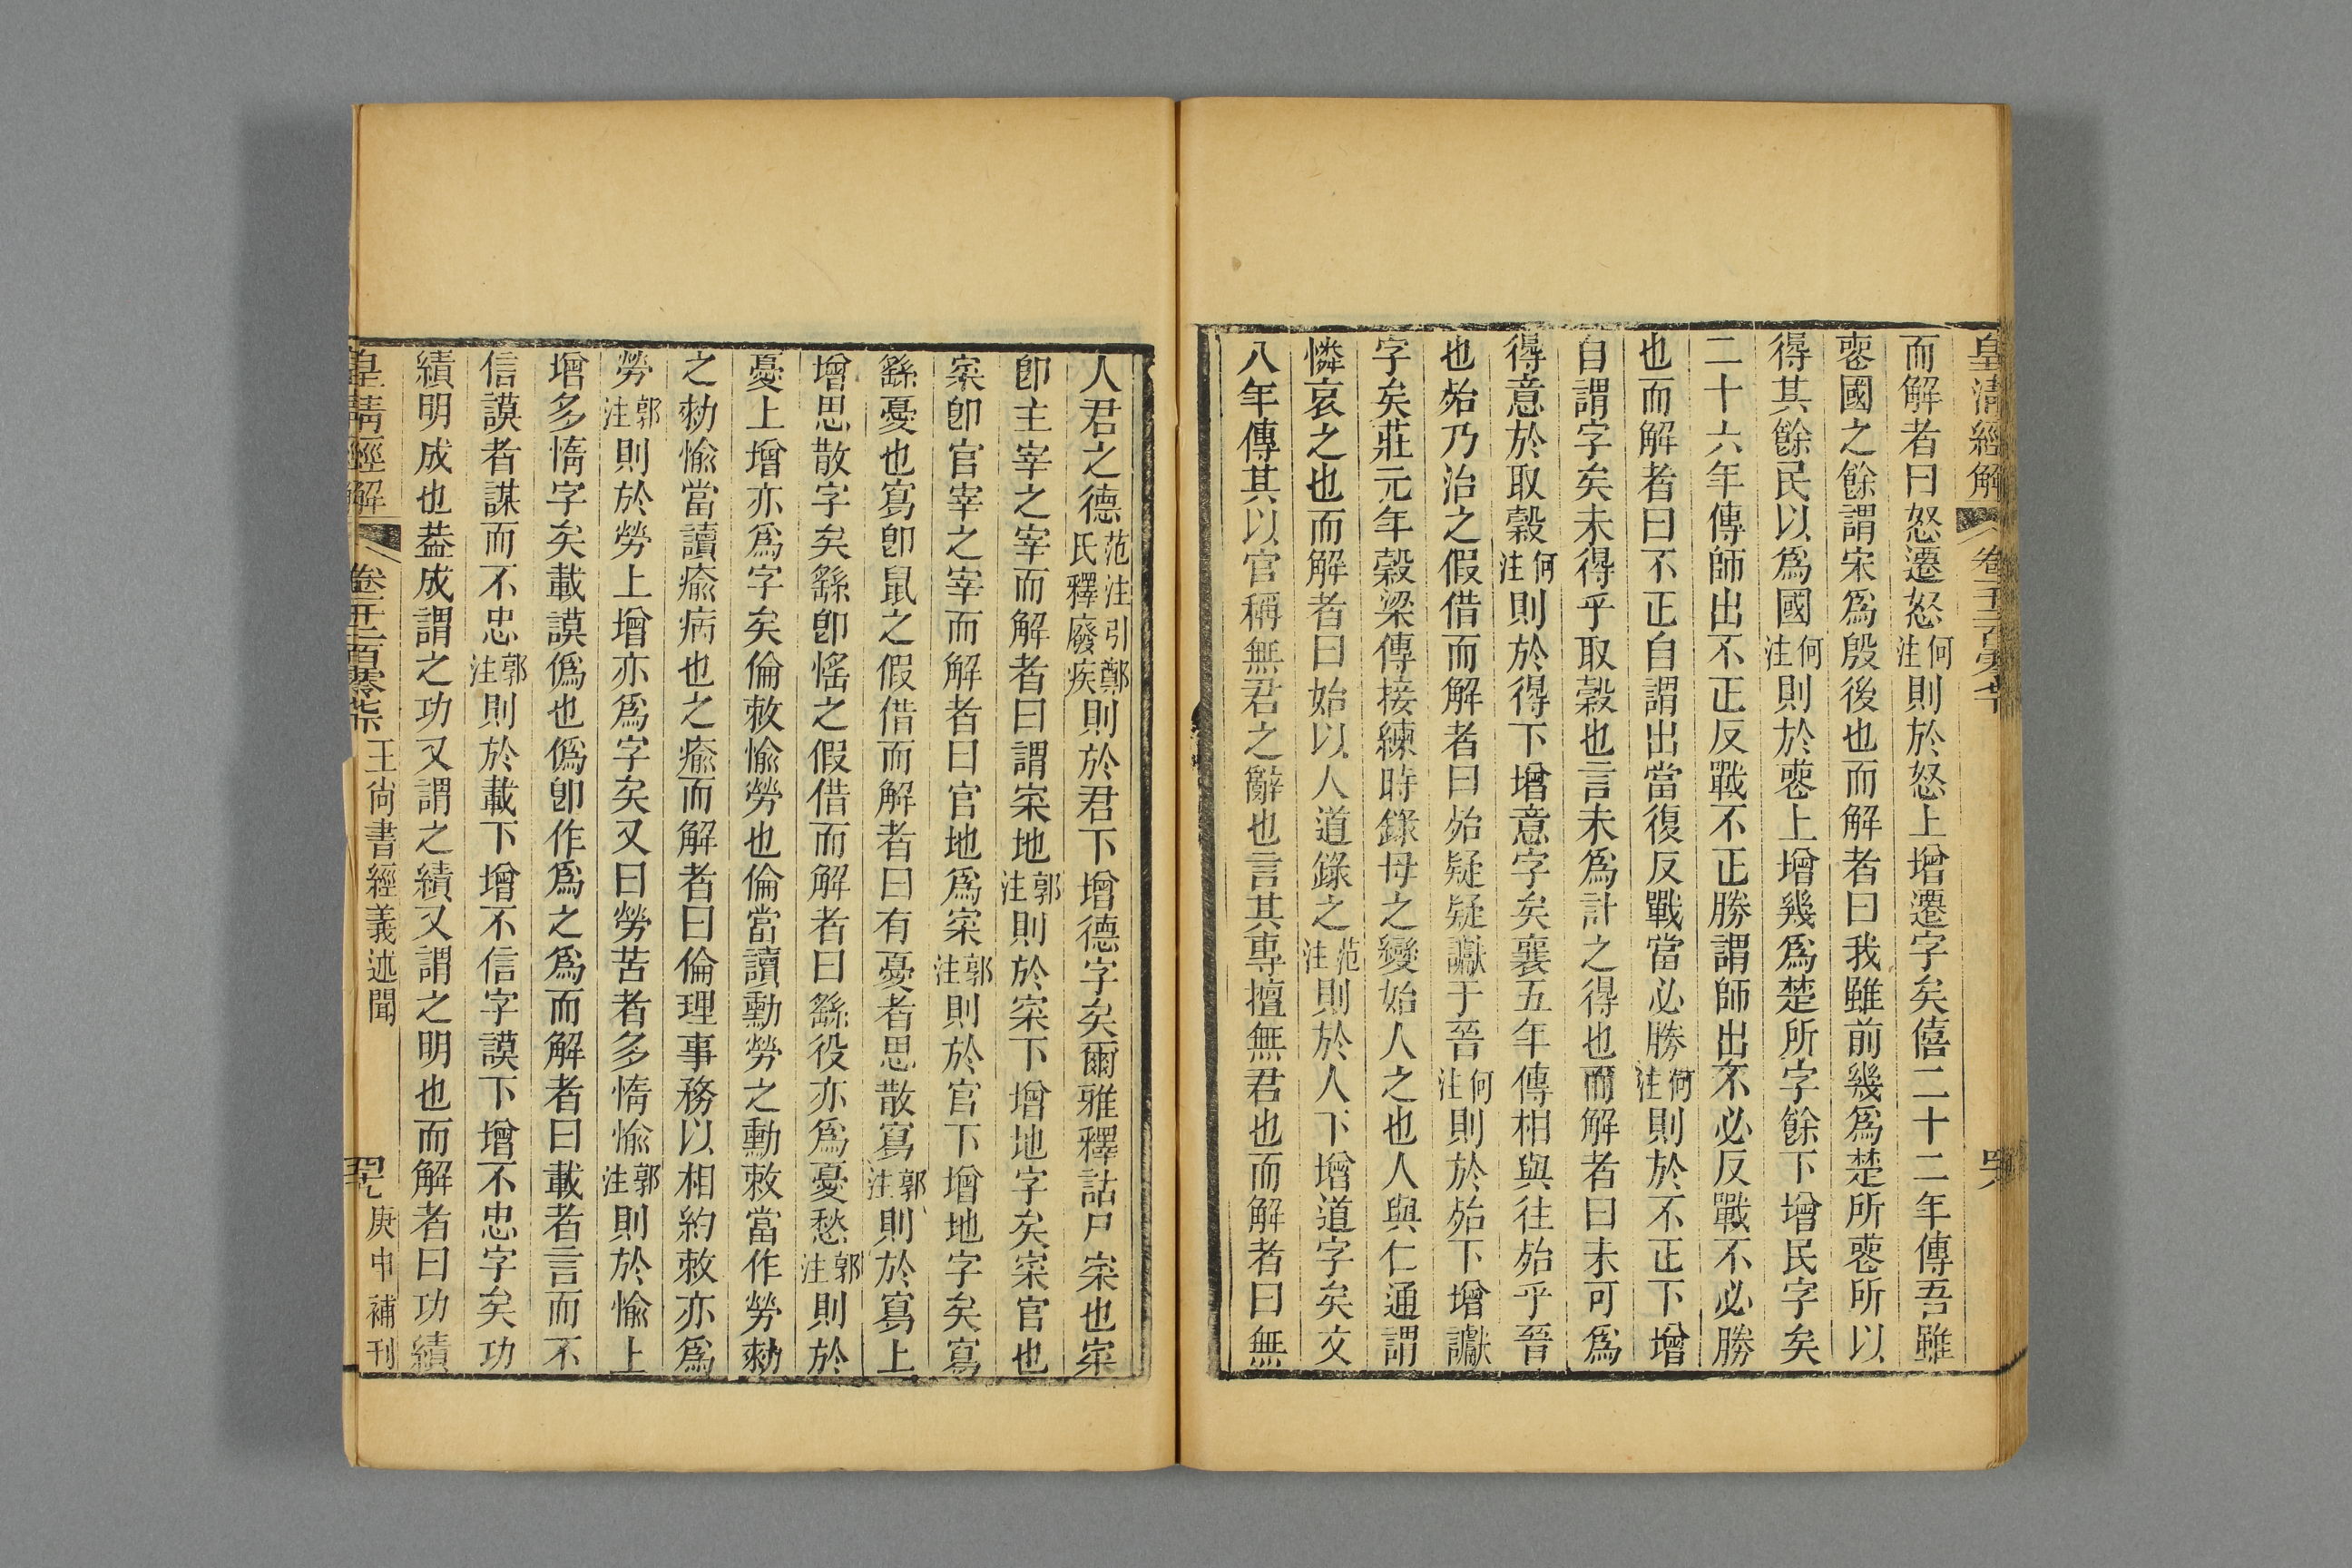 皇清經解
而解者曰怒遷怒何注則於怒上增遷字矣僖二十二年傳吾雖
喪國之餘謂宋爲殷後也而解者曰我雖前幾爲楚所喪所以
得其餘民以爲國何注則於喪上增幾爲楚所字餘下增民字矣
二十六年傳師出不正反戰不正勝謂師出不必反戰不必勝
也而解者曰不正自謂出當復反戰當必勝何注則於不正下增
自謂字矣未得乎取穀也言未爲計之得也而解者曰未可爲
得意於取穀何注則於得下增意字矣襄五年傳相與往殆乎晉
也殆乃治之假借而解者曰殆疑疑讞于晉何注則於殆下增讞
字矣莊元年穀梁傳接練時錄母之變始人之也人與仁通謂
憐哀之也而解者曰始以人道錄之范注則於人下增道字矣文
八年傳其以官稱無君之辭也言其專擅無君也而解者曰無
人君之德范注引鄭氏釋廢疾則於君下增德字矣爾雅釋詁尸寀也寀
卽主宰之宰而解者曰謂寀地郭注則於寀下增地字矣寀官也
寀卽官宰之宰而解者曰官地爲寀郭注則於官下增地字矣寫
繇憂也寫卽鼠之假借而解者曰有憂者思散寫郭注則於寫上
增思散字矣繇卽愮之假借而解者曰繇役亦爲憂愁郭注則於
憂上增亦爲字矣倫敕愉勞也倫當讀勳勞之勳敕當作勞勑
之勑愉當讀瘉病也之瘉而解者曰倫理事務以相約敕亦爲
勞郭注則於勞上增亦爲字矣又曰勞苦者多惰愉郭注則於愉上
增多惰字矣載謨僞也僞卽作爲之爲而解者曰載者言而不
信謨者謀而不忠郭注則於載下增不信字謨下增不忠字矣功
績明成也葢成謂之功又謂之績又謂之明也而解者曰功績
皇清經解 王尙書經義述聞 庚申補刊